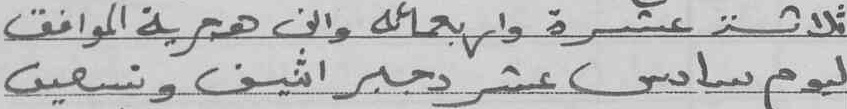 ثلاثة عشرة واربعمائة والف هجرية الموافق
ليوم سادس عشر دجنبر اثنين وتسعين